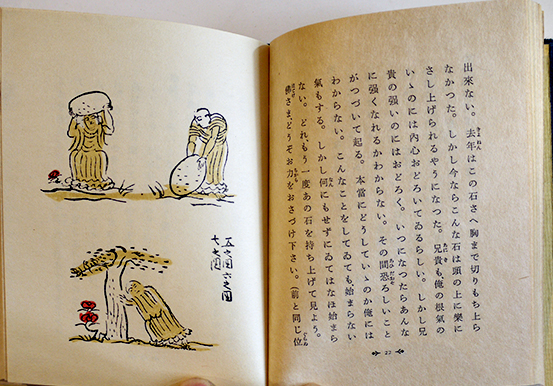 出來ない。去年はこの石さへ胸まで切りもち上ら
なかつた。しかし今ならこんな石は頭の上に樂に
さし上げられるやうになつた。兄貴も俺の根氣の
いゝのには內心おどろいてゐるらしい。しかし兄
貴の强いのにはおどろく。いつになつたらあんな
に强くなれるかわからない。その間恐ろしいこと
がつづいて起る。本當にどうしていゝのか俺には
わからない。こんなことをしてゐても始まらない
氣もする。しかし何にもせずにゐてはなほ始まら
ない。どれもう一度あの石を持ち上げて見よう。
佛さま、どうぞお力をおさづけ下さい。(前と同じ位
22
五の図六の図
七の図